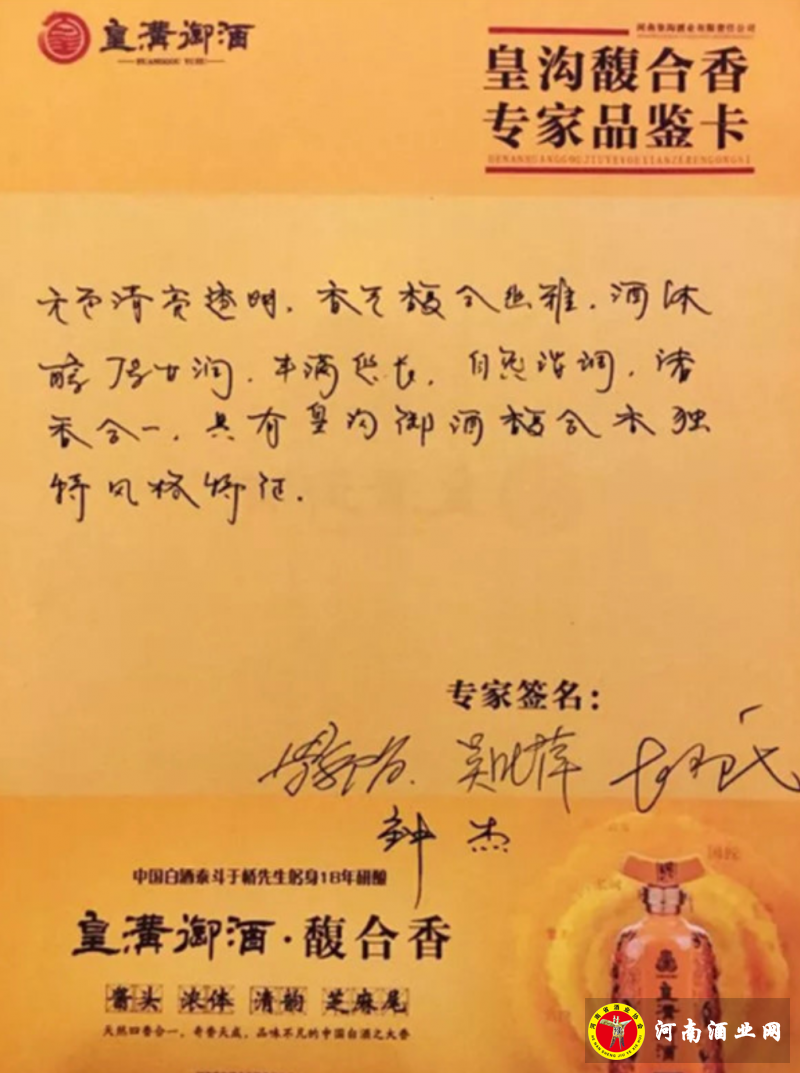 皇溝御酒
HUANGGOU YUJIU
河南皇沟酒业有限责任公司
皇沟馥合香
专家品鉴卡
HENANHUANGGOUJIUYEYOUXIANZERENGONGSI
无色清亮透明，香气馥合幽雅，酒体
醇厚甘润，丰满悠长，自然谐调，诸
香合一，具有皇沟御酒馥合香独
特风格特征。
专家签名：
钟杰
中国白酒泰斗于桥先生躬身18年研酿
皇溝御酒·馥合香
酱头 浓体 清韵 芝麻尾
天然四香合一，奇香天成，品味不凡的中国白酒之大香
皇溝御酒
河南酒业网